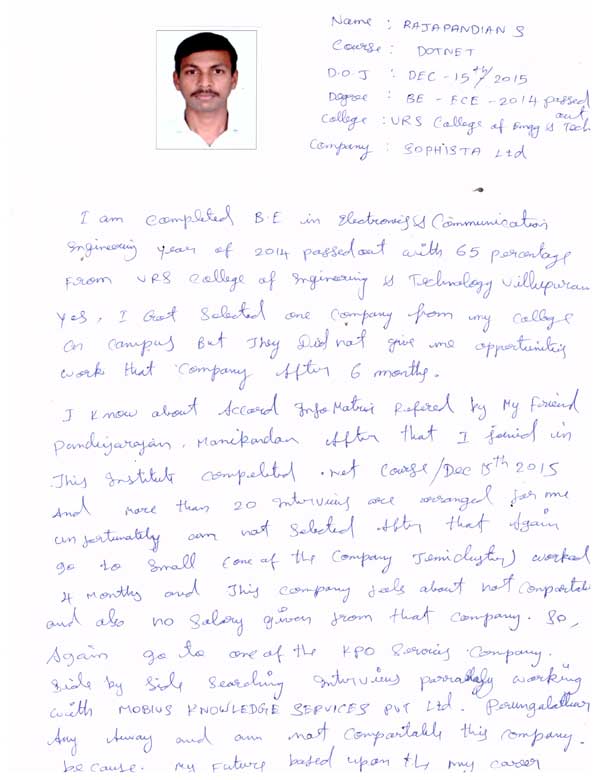 Name : RAJAPANDIAN S
Course : DOTNET
D.O.J : DEC - 15th/2015
Degree : BE - ECE - 2014 passed out
College : VRS College of Engg & Tech
Company : SOPHISTA Ltd
I am Completed B.E in Electronics & Communication
Engineering year of 2014 passedout with 65 percentage
From VRS College of Engineering & Technology Villupuram
Yes, I Got Selected one Company from my college
On campus But They Did not give me opportunities
work that Company After 6 months.
I know about Accord InfoMatrix Refered by My Friend
Pandiyarajan, Manikandan After that I joined in
This Institute completed .net Course/Dec 15th 2015
And more than 20 Interviws are arranged for me
unfortunately am not Selected After that Again
go to Small (one of the Company) worked
4 Months and This company feels about not Compartabl
and also no Salary given from that Company. So,
Again go to one of the KPO Servies Company.
Side by Side Searching Interviws working
with MOBIUS KNOWLEDGE SERVICES PVT Ltd. Perungalathur
Any Away and am not Compartable this company.
because. My Future based upon the my career